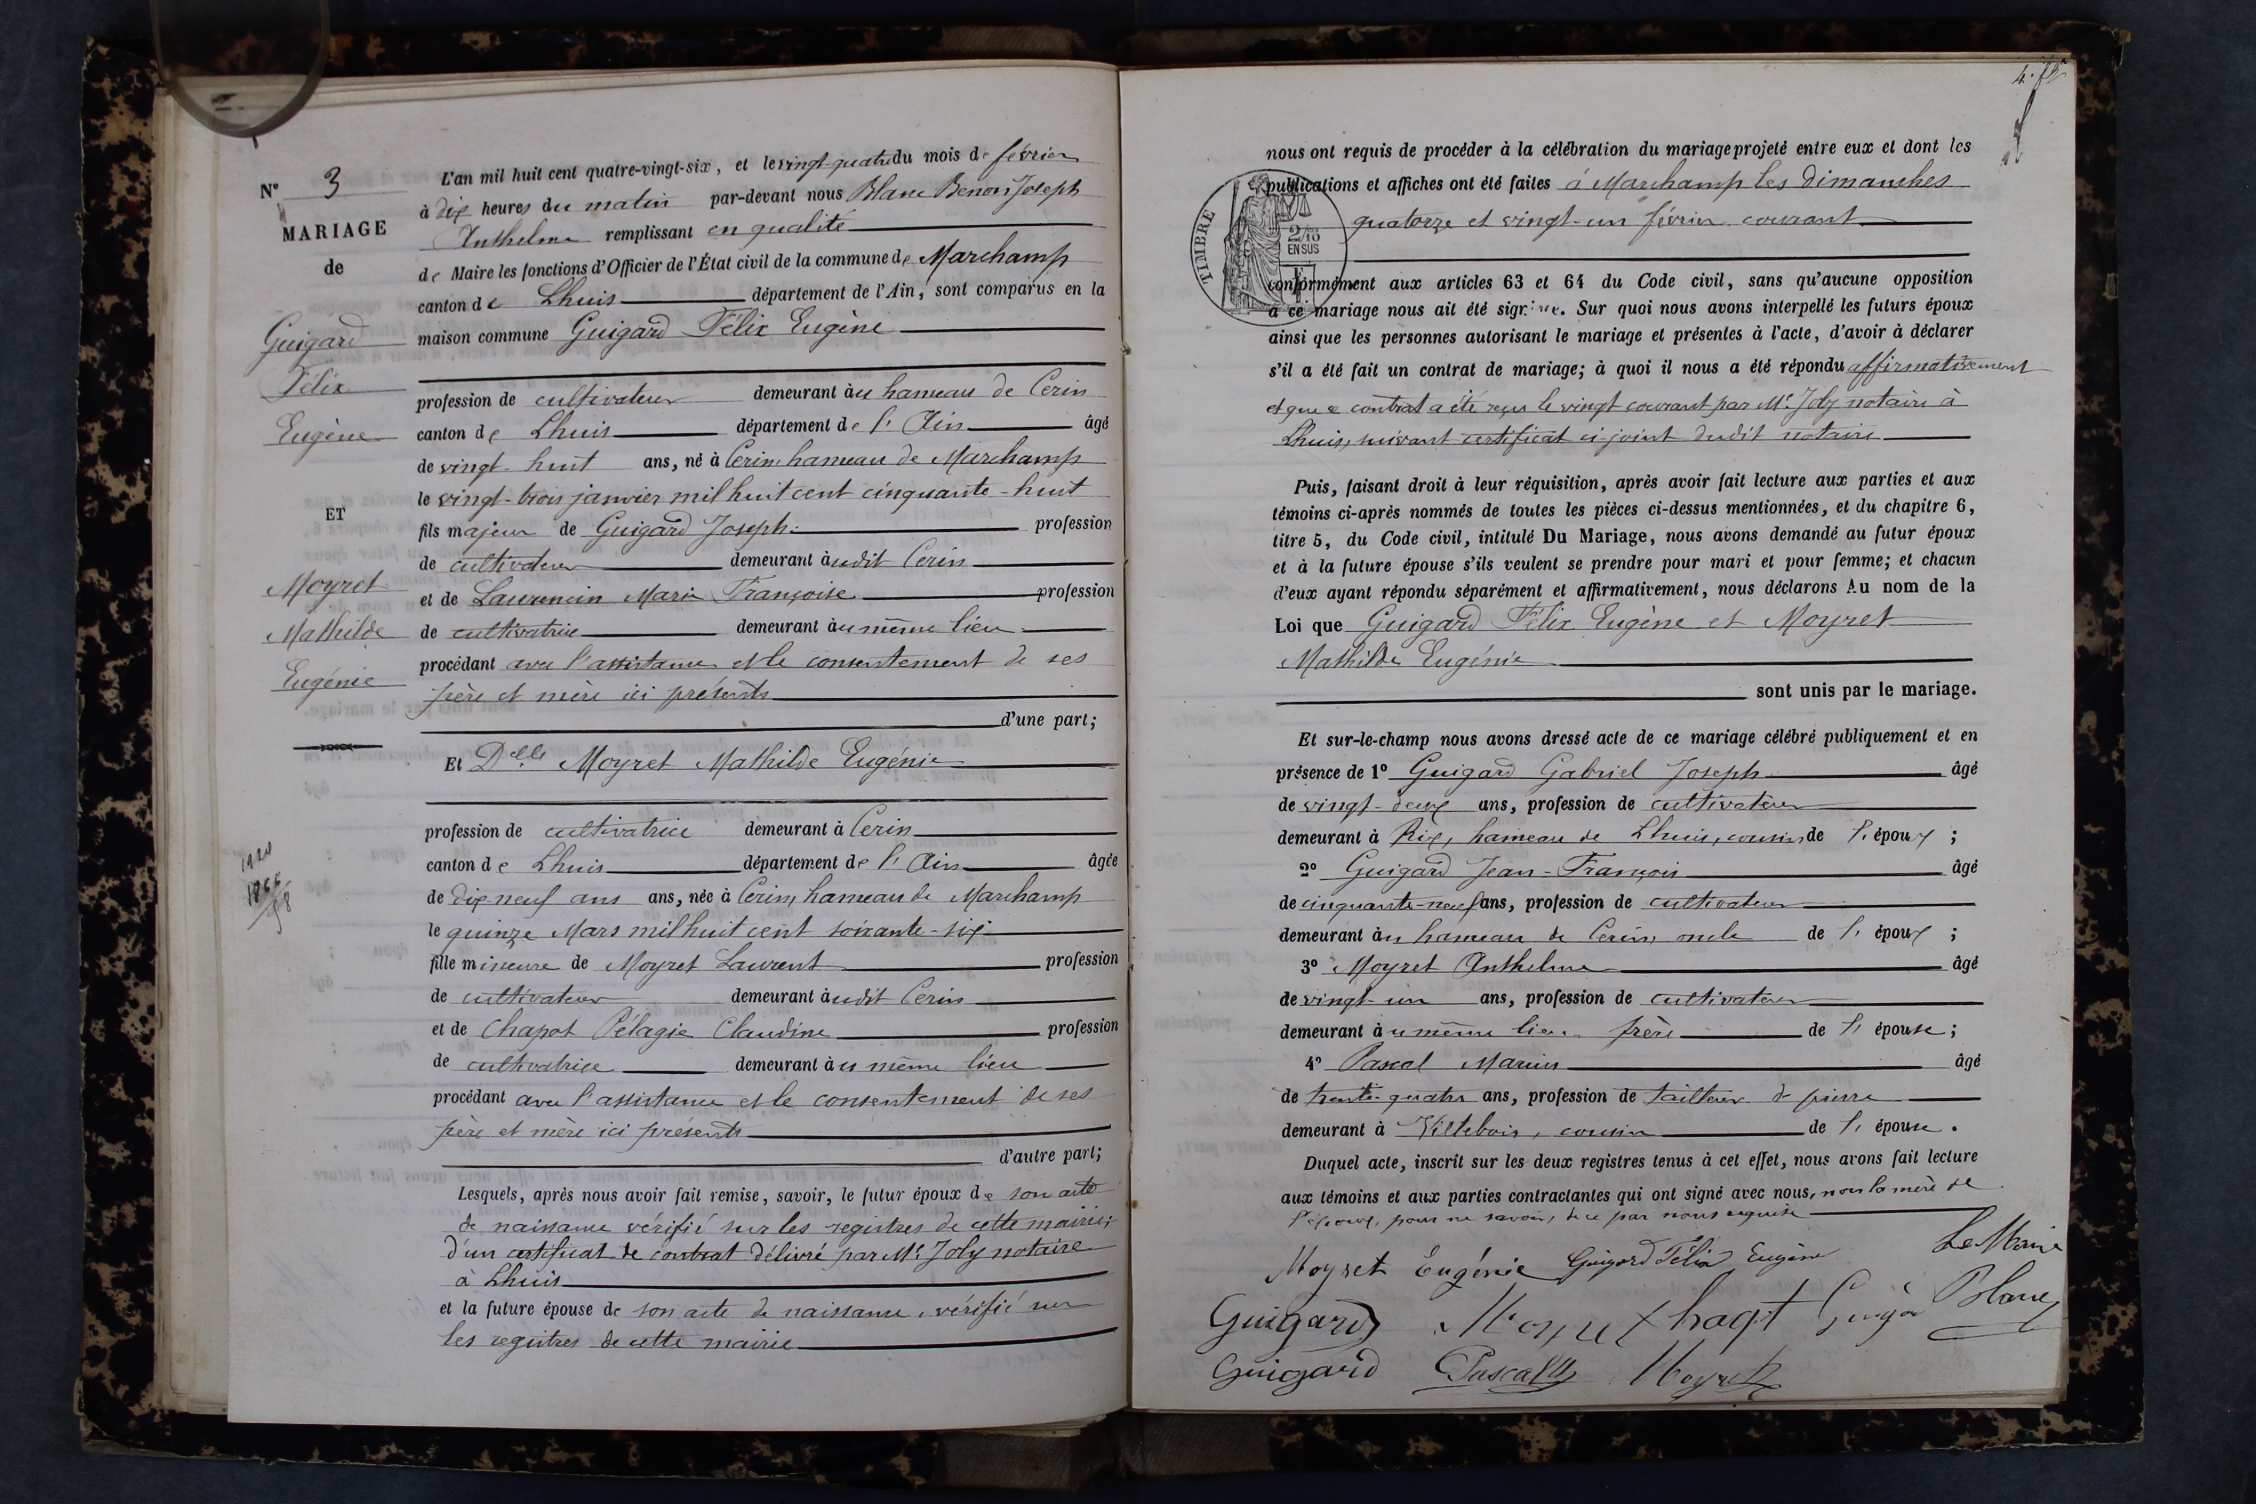 N° 3
MARIAGE
de
Guigard
Félix
Eugène
ET
Moyret
Mathilde
Eugénie
L'an mil huit cent quatre-vingt-six, et le vingt-quatre du mois de février
à dix heures du matin par-devant nous Blanc Benoit Joseph
Anthelme remplissant en qualité
de Maire les fonctions d'Officier de l'État civil de la commune de Marchamp
canton de Lhuis département de l'Ain, sont comparus en la
maison commune Guigard Félix Eugène
profession de cultivateur demeurant au hameau de Cerin
canton de Lhuis département de l'Ain âgé
de vingt-huit ans, né à Cerin hameau de Marchamp
le vingt-trois janvier mil huit cent cinquante-huit
fils majeur de Guigard Joseph profession
de cultivateur demeurant audit Cerin
et de Laurencin Marie Françoise profession
de cultivatrice demeurant au même lieu
procédant avec l'assistance et le consentement de ses
père et mère ici présents
d'une part;
Et Delle Moyret Mathilde Eugénie
profession de cultivatrice demeurant à Cerin
canton de Lhuis département de l'Ain âgée
de dix-neuf ans ans, née à Cerin, hameau de Marchamp
le quinze Mars mil huit cent soixante-six
fille mineure de Moyret Laurent profession
de cultivateur demeurant audit Cerin
et de Chapot Pélagie Claudine profession
de cultivatrice demeurant au même lieu
procédant avec l'assistance et le consentement de ses
père et mère ici présents
d'autre part;
Lesquels, après nous avoir fait remise, savoir, le futur époux de son acte
de naissance vérifié sur les registres de cette mairie;
d'un certificat de contrat délivré par Me Joly notaire
à Lhuis
et la future épouse de son acte de naissance, vérifié sur
les registres de cette mairie
nous ont requis de procéder à la célébration du mariage projeté entre eux et dont les
publications et affiches ont été faites à Marchamp les dimanches
quatorze et vingt-un février courant
TIMBRE
2/10
EN SUS
conformément aux articles 63 et 64 du Code civil, sans qu'aucune opposition
à ce mariage nous ait été signifiée. Sur quoi nous avons interpellé les futurs époux
ainsi que les personnes autorisant le mariage et présentes à l'acte, d'avoir à déclarer
s'il a été fait un contrat de mariage; à quoi il nous a été répondu affirmativement
et que ce contrat a été reçu le vingt courant par Me Joly notaire à
Lhuis, suivant certificat ci-joint dudit notaire
Puis, faisant droit à leur réquisition, après avoir fait lecture aux parties et aux
témoins ci-après nommés de toutes les pièces ci-dessus mentionnées, et du chapitre 6,
titre 5, du Code civil, intitulé Du Mariage, nous avons demandé au futur époux
et à la future épouse s'ils veulent se prendre pour mari et pour femme; et chacun
d'eux ayant répondu séparément et affirmativement, nous déclarons Au nom de la
Loi que Guigard Félix Eugène et Moyret
Mathilde Eugénie
sont unis par le mariage.
Et sur-le-champ nous avons dressé acte de ce mariage célébré publiquement et en
présence de 1° Guigard Gabriel Joseph âgé
de vingt-deux ans, profession de cultivateur
demeurant à Rix, hameau de Lhuis, cousin de l'époux ;
2° Guigard Jean-François âgé
de cinquante-neuf ans, profession de cultivateur
demeurant au hameau de Cerin, oncle de l'époux ;
3° Moyret Anthelme âgé
de vingt-un ans, profession de cultivateur
demeurant au même lieu frère de l'épouse ;
4° Pascal Marius âgé
de trente-quatre ans, profession de tailleur de pierre
demeurant à Villebois, cousin de l'épouse.
Duquel acte, inscrit sur les deux registres tenus à cet effet, nous avons fait lecture
aux témoins et aux parties contractantes qui ont signé avec nous, non la mère de
l'époux, pour ne savoir, de ce par nous requise
Moyret Eugénie Guigard Félix Eugène Le Maire
Guigard Blanc
Guigard Pascal Moyret